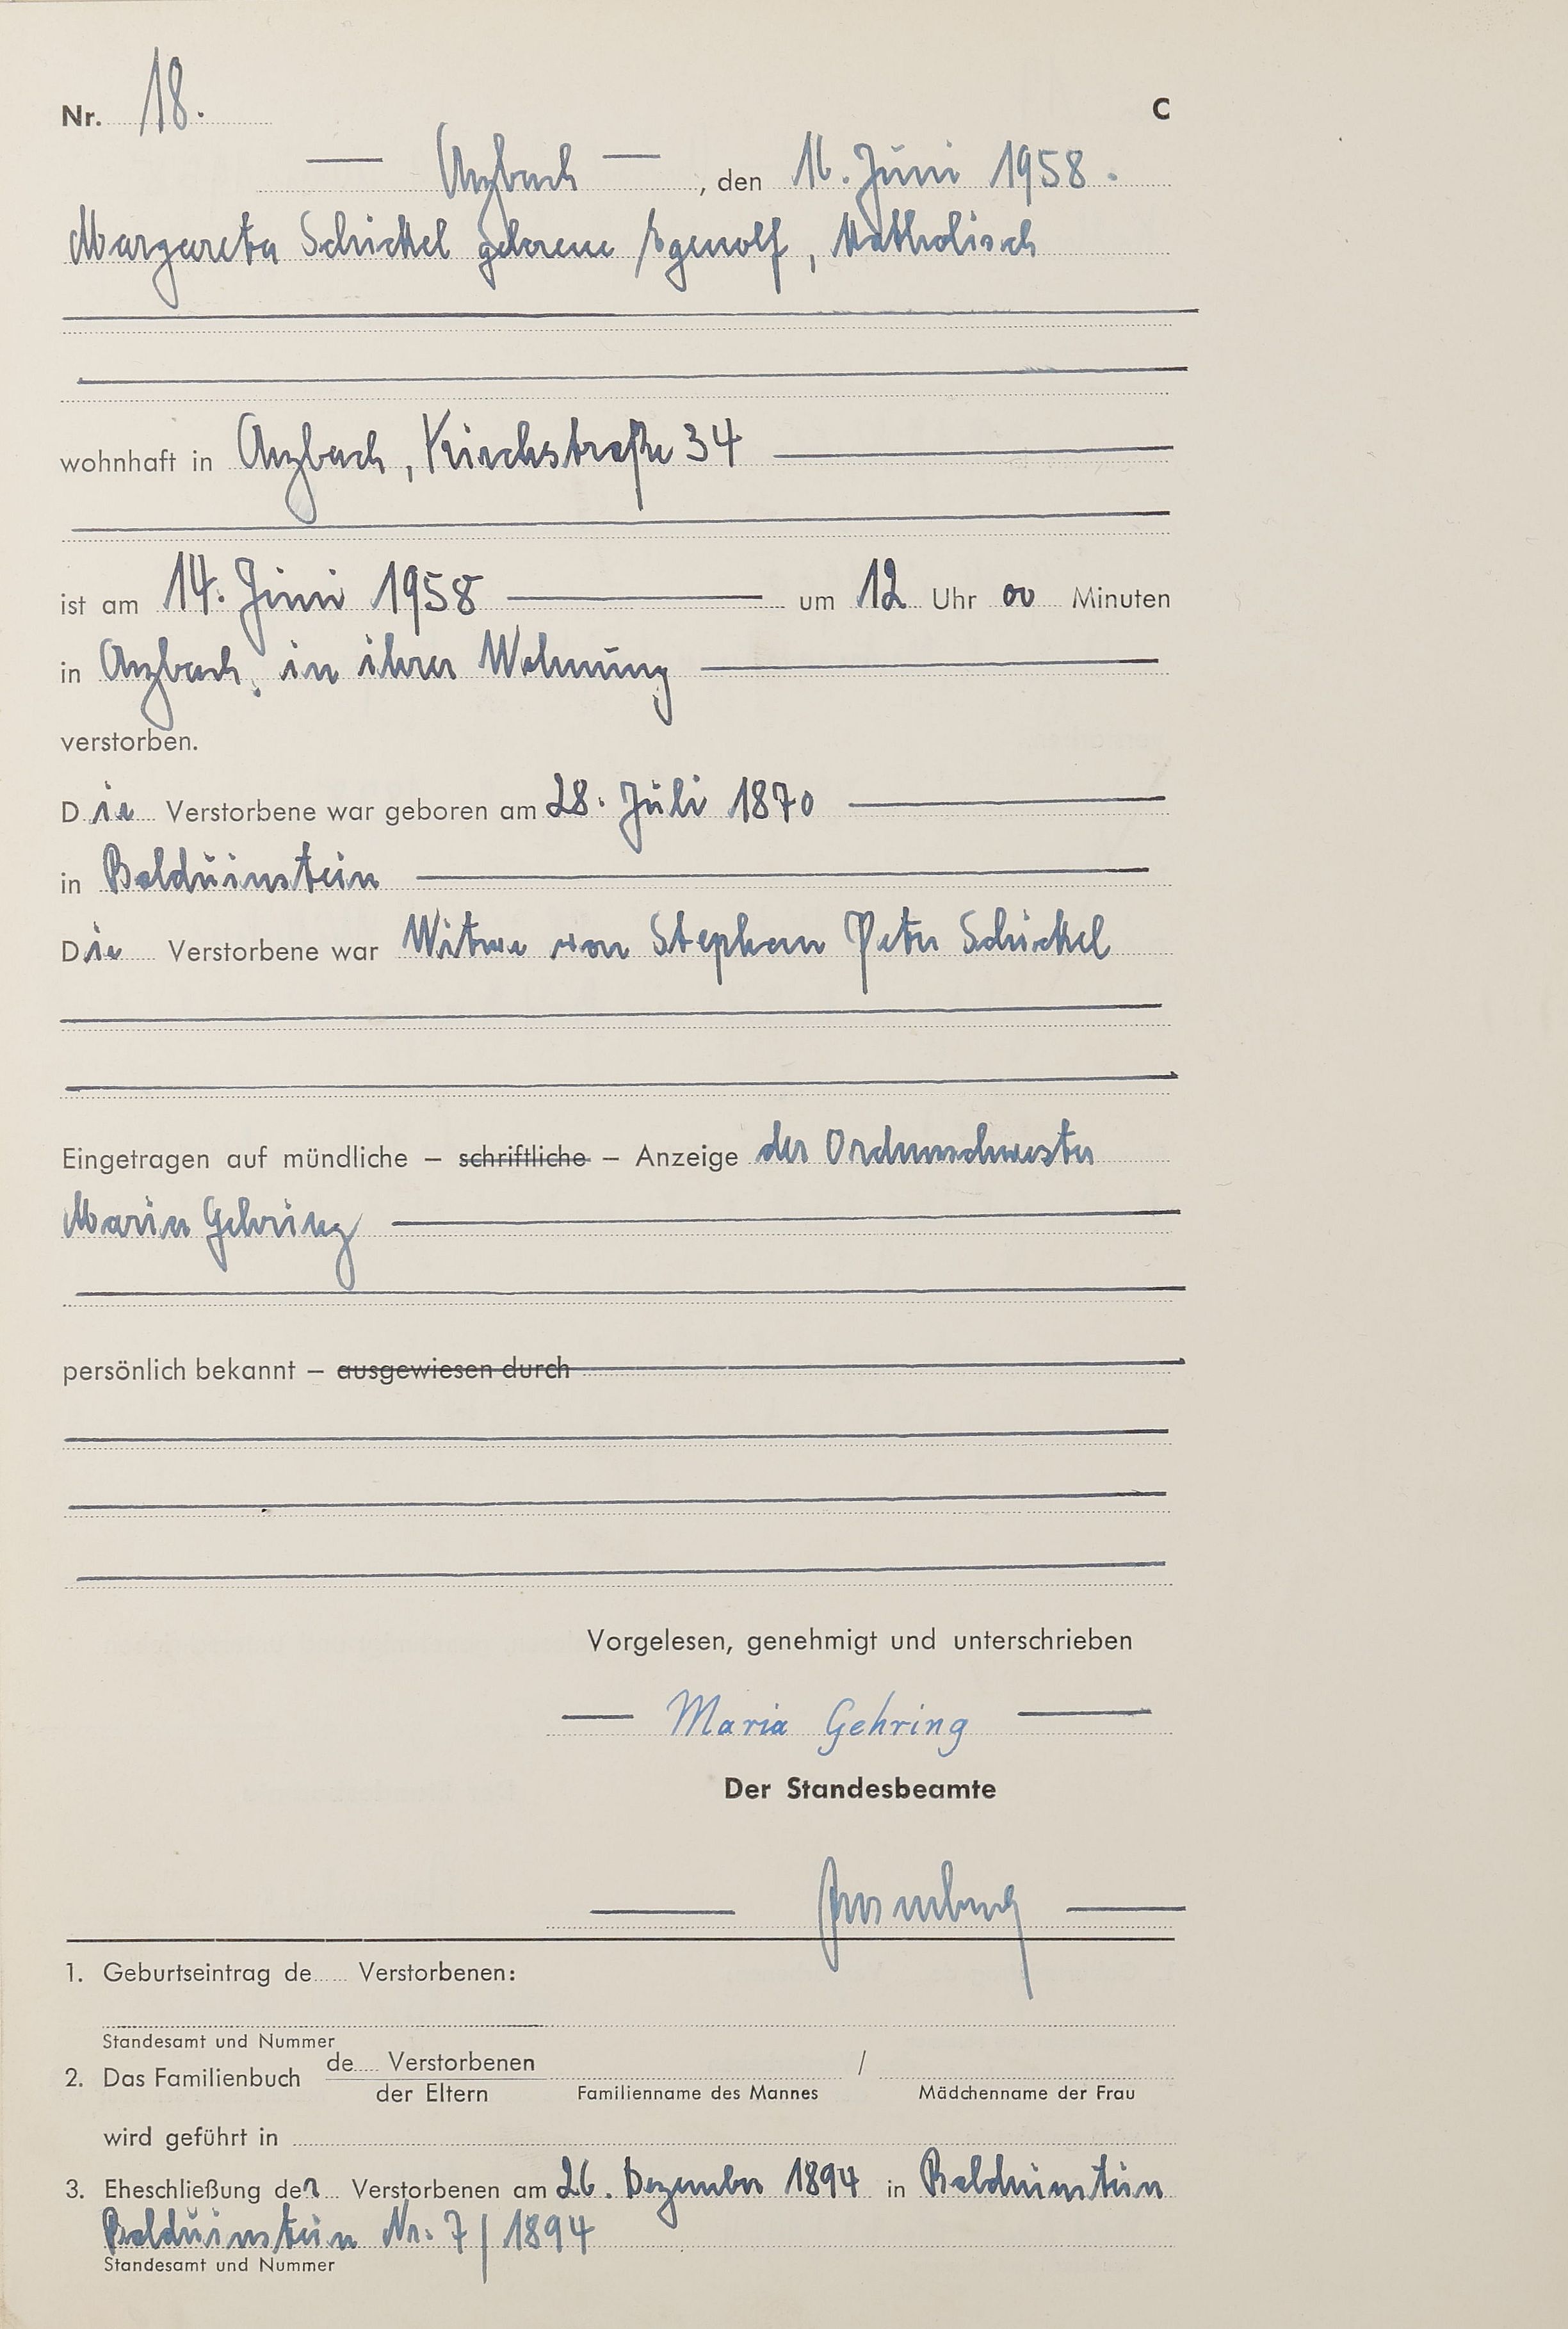 Nr. 18. C
— Arzbach —, den 16. Juni 1958.
Margareta Schickel geborene Egenolf, katholisch
wohnhaft in Arzbach, Kirchstraße 34
ist am 14. Juni 1958 um 12 Uhr 00 Minuten
in Arzbach, in ihrer Wohnung
verstorben.
Die Verstorbene war geboren am 28. Juli 1870
in Balduinstein
Die Verstorbene war Witwe von Stephan Peter Schickel
Eingetragen auf mündliche – schriftliche – Anzeige der Ordensschwester
Maria Gehring
persönlich bekannt – ausgewiesen durch
Vorgelesen, genehmigt und unterschrieben
— Maria Gehring —
Der Standesbeamte
1. Geburtseintrag de Verstorbenen:
Standesamt und Nummer
2. Das Familienbuch de Verstorbenen /
der Eltern Familienname des Mannes Mädchenname der Frau
wird geführt in
3. Eheschließung der Verstorbenen am 26. Dezember 1894 in Balduinstein
Balduinstein Nr. 7/1894
Standesamt und Nummer